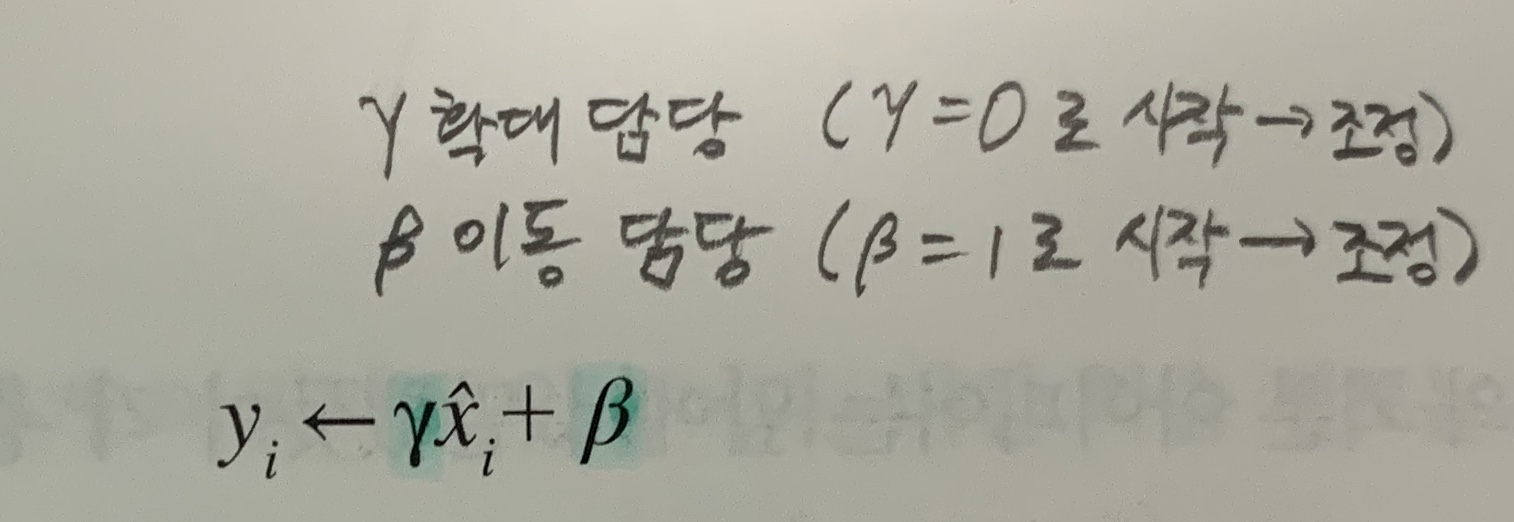 γ 확대 담당 (γ=0 로 시작→조정)
β 이동 담당 (β=1 로 시작→조정)
y_i ← γx̂_i + β